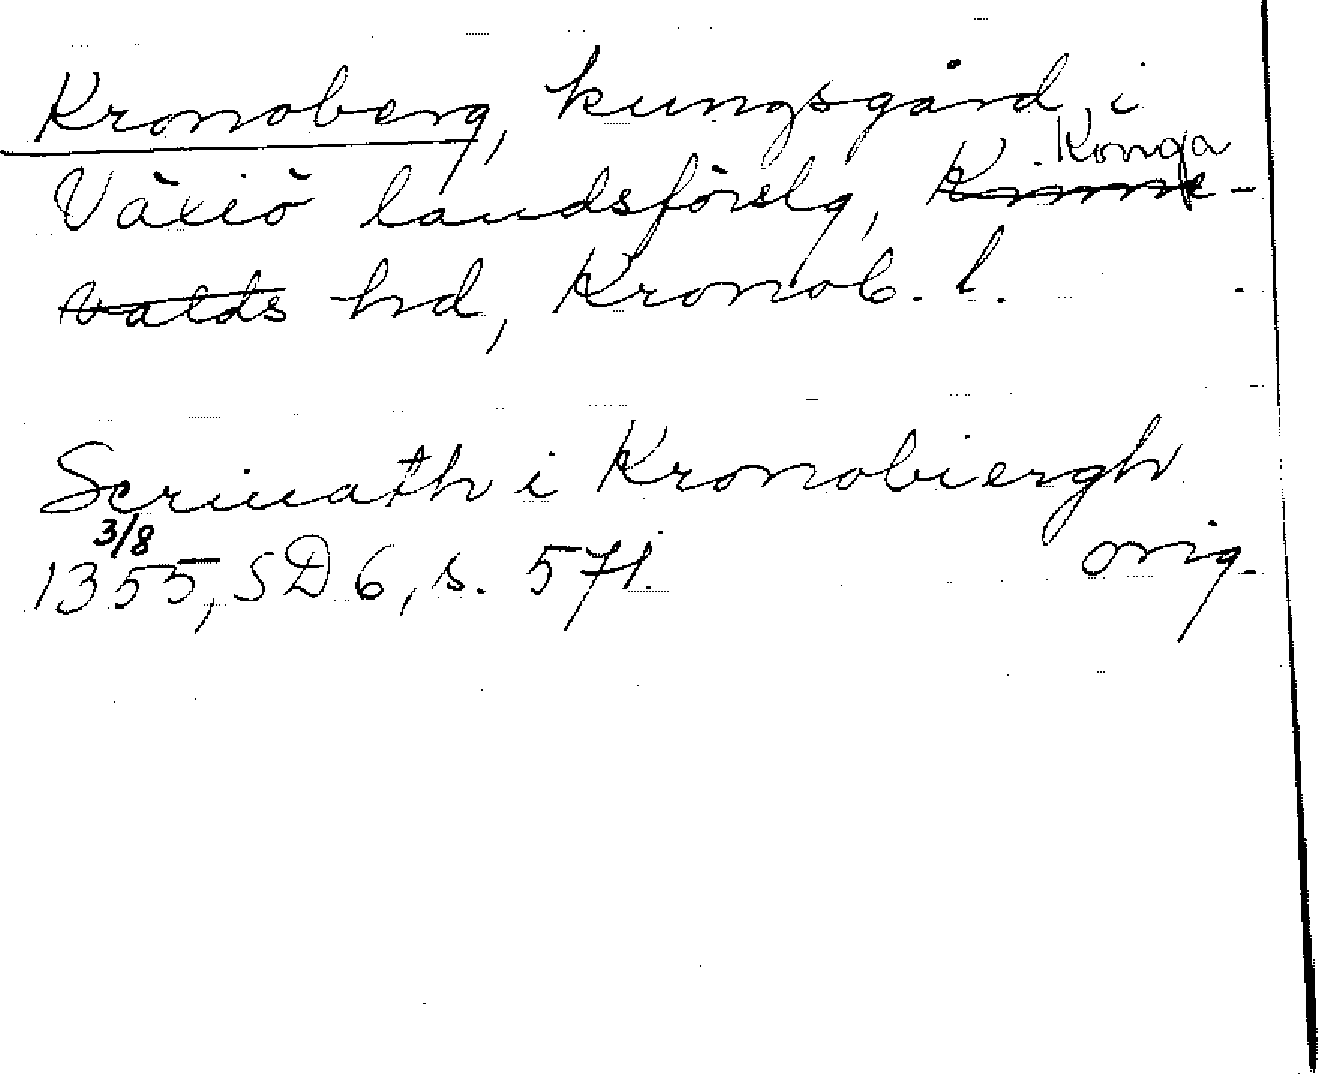 Kronoberg, kungsgård, i
Konga
Växiö landsförslg, Kinne-
valds hd, Kronob. l.
Scriuath i Kronobiergh
3/8
1355, SD 6, s. 571. orig.